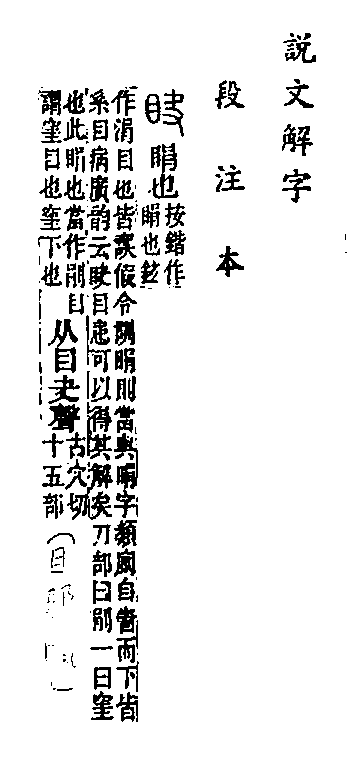 說文解字
段注本
䀗
睊也
按鍇作
睊也鉉
作涓目也皆誤假令訓睊則當與睊字類廁自眚而下皆
系目病廣韵云䀗目患可以得其解矣刀部曰剈一曰窐
也此睊也當作剈目
謂窐目也窐下也
从目夬聲
古穴切
十五部
(目部